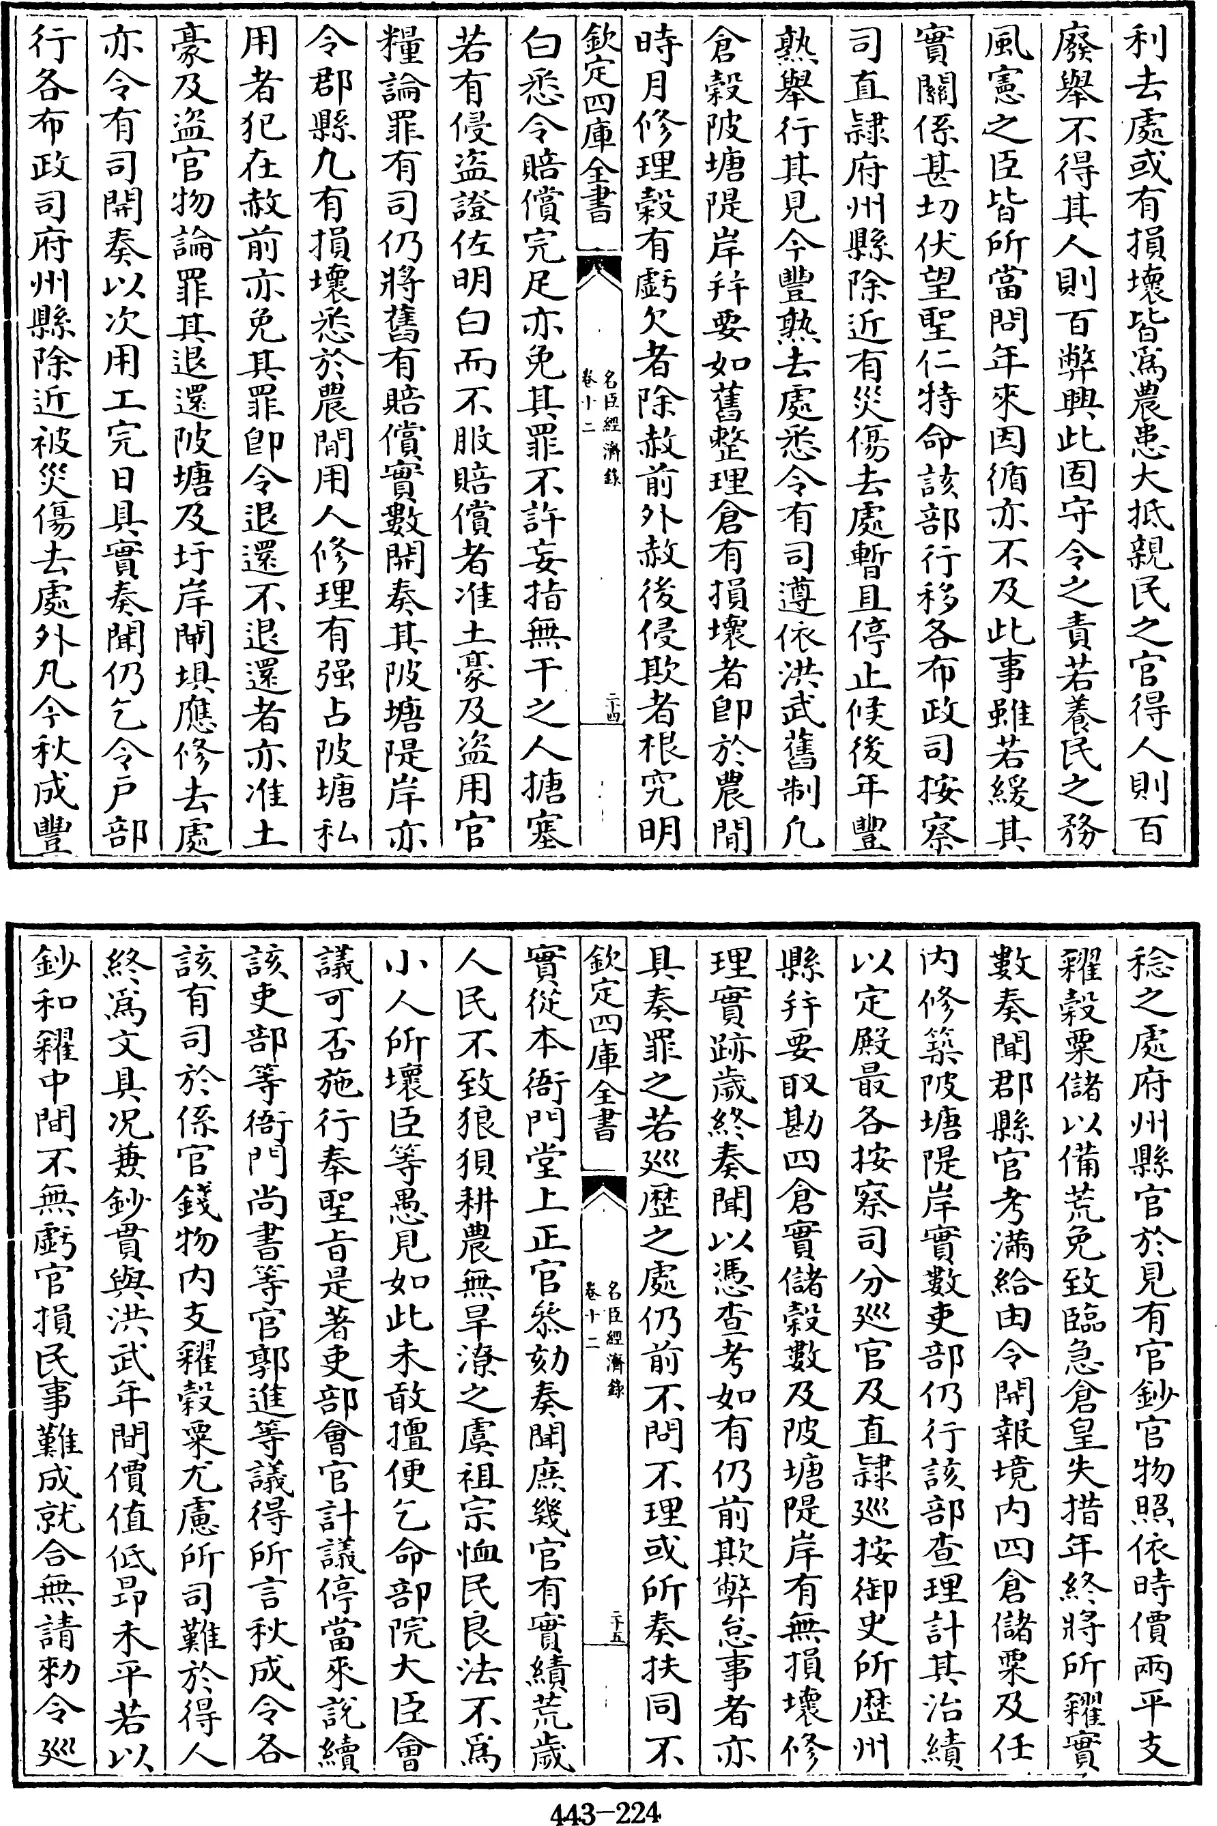 利去處或有損壞皆爲農患大抵親民之官得人則百
廢舉不得其人則百弊興此固守令之責若養民之務
風憲之臣皆所當問年來因循亦不及此事雖若緩其
實關係甚切伏望聖仁特命該部行移各布政司按察
司直隷府州縣除近有災傷去處暫且停止候後年豐
熟舉行其見今豐熟去處悉令有司遵依洪武舊制凡
倉糓陂塘隄岸幷要如舊整理倉有損壞者即於農閒
時月修理糓有虧欠者除赦前外赦後侵欺者根究明
欽定四庫全書
名臣經濟錄
卷十二
二十四
白悉令賠償完足亦免其罪不許妄指無干之人搪塞
若有侵盗證佐明白而不服賠償者准土豪及盗用官
糧論罪有司仍將舊有賠償實數開奏其陂塘隄岸亦
令郡縣凡有損壞悉於農閒用人修理有强占陂塘私
用者犯在赦前亦免其罪即令退還不退還者亦准土
豪及盗官物論罪其退還陂塘及圩岸閘埧應修去處
亦令有司開奏以次用工完日具實奏聞仍乞令戸部
行各布政司府州縣除近被災傷去處外凡今秋成豐
稔之處府州縣官於見有官鈔官物照依時價兩平支
糴糓粟儲以備荒免致臨急倉皇失措年終將所糴實
數奏聞郡縣官考滿給由令開報境内四倉儲粟及任
内修築陂塘隄岸實數吏部仍行該部查理計其治績
以定殿最各按察司分巡官及直隷巡按御史所歴州
縣幷要取勘四倉實儲糓數及陂塘隄岸有無損壞修
理實跡歳終奏聞以憑查考如有仍前欺弊怠事者亦
具奏罪之若巡歴之處仍前不問不理或所奏扶同不
欽定四庫全書
名臣經濟錄
卷十二
二十五
實從本衙門堂上正官叅劾奏聞庶幾官有實績荒歳
人民不致狼狽耕農無旱潦之虞祖宗恤民良法不爲
小人所壞臣等愚見如此未敢擅便乞命部院大臣會
議可否施行奉聖旨是著吏部會官計議停當來說續
該吏部等衙門尚書等官郭進等議得所言秋成令各
該有司於係官錢物内支糴糓粟尤慮所司難於得人
終爲文具况兼鈔貫與洪武年間價值低昂未平若以
鈔和糴中間不無虧官損民事難成就合無請勅令巡
443-224